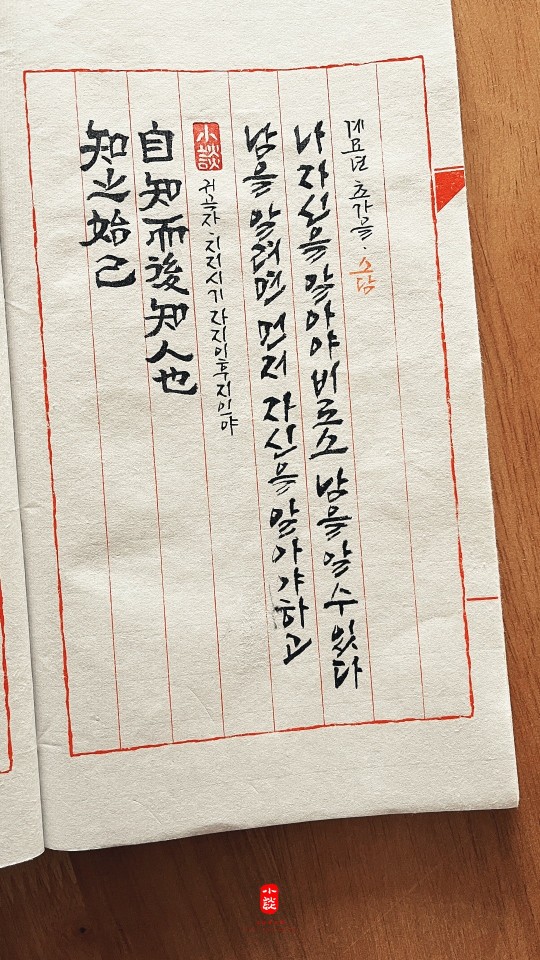 知之始己
自知而後知人也
小談
귀곡자·지지시기 자지이후지인야
남을 알려면 먼저 자신을 알아야하고
나 자신을 알아야 비로소 남을 알 수 있다
계묘년 초가을·소담
小談